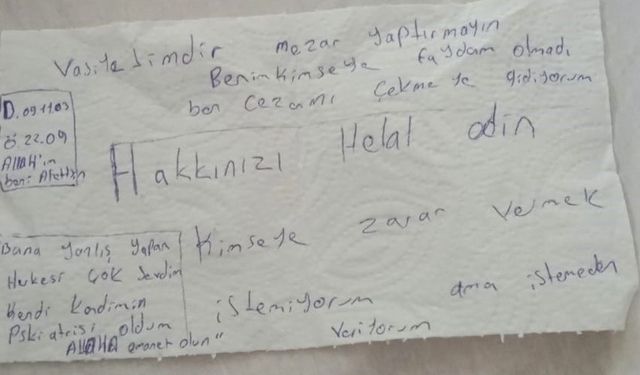 Vasiyetimdir mezar yaptırmayın
Benim kimseye faydam olmadı
ben cezamı çekmeye gidiyorum
D.091103
Ö.22.09
Allah'ım
beni Affetsin
Hakkınızı Helal edin
Bana yanlış yapan
Herkesi çok sevdim
Kendi kendimin
Pskiatrisi oldum
ALLAHA emanet olun"
Kimseye zarar vermek
istemiyorum ama istemeden
veriyorum